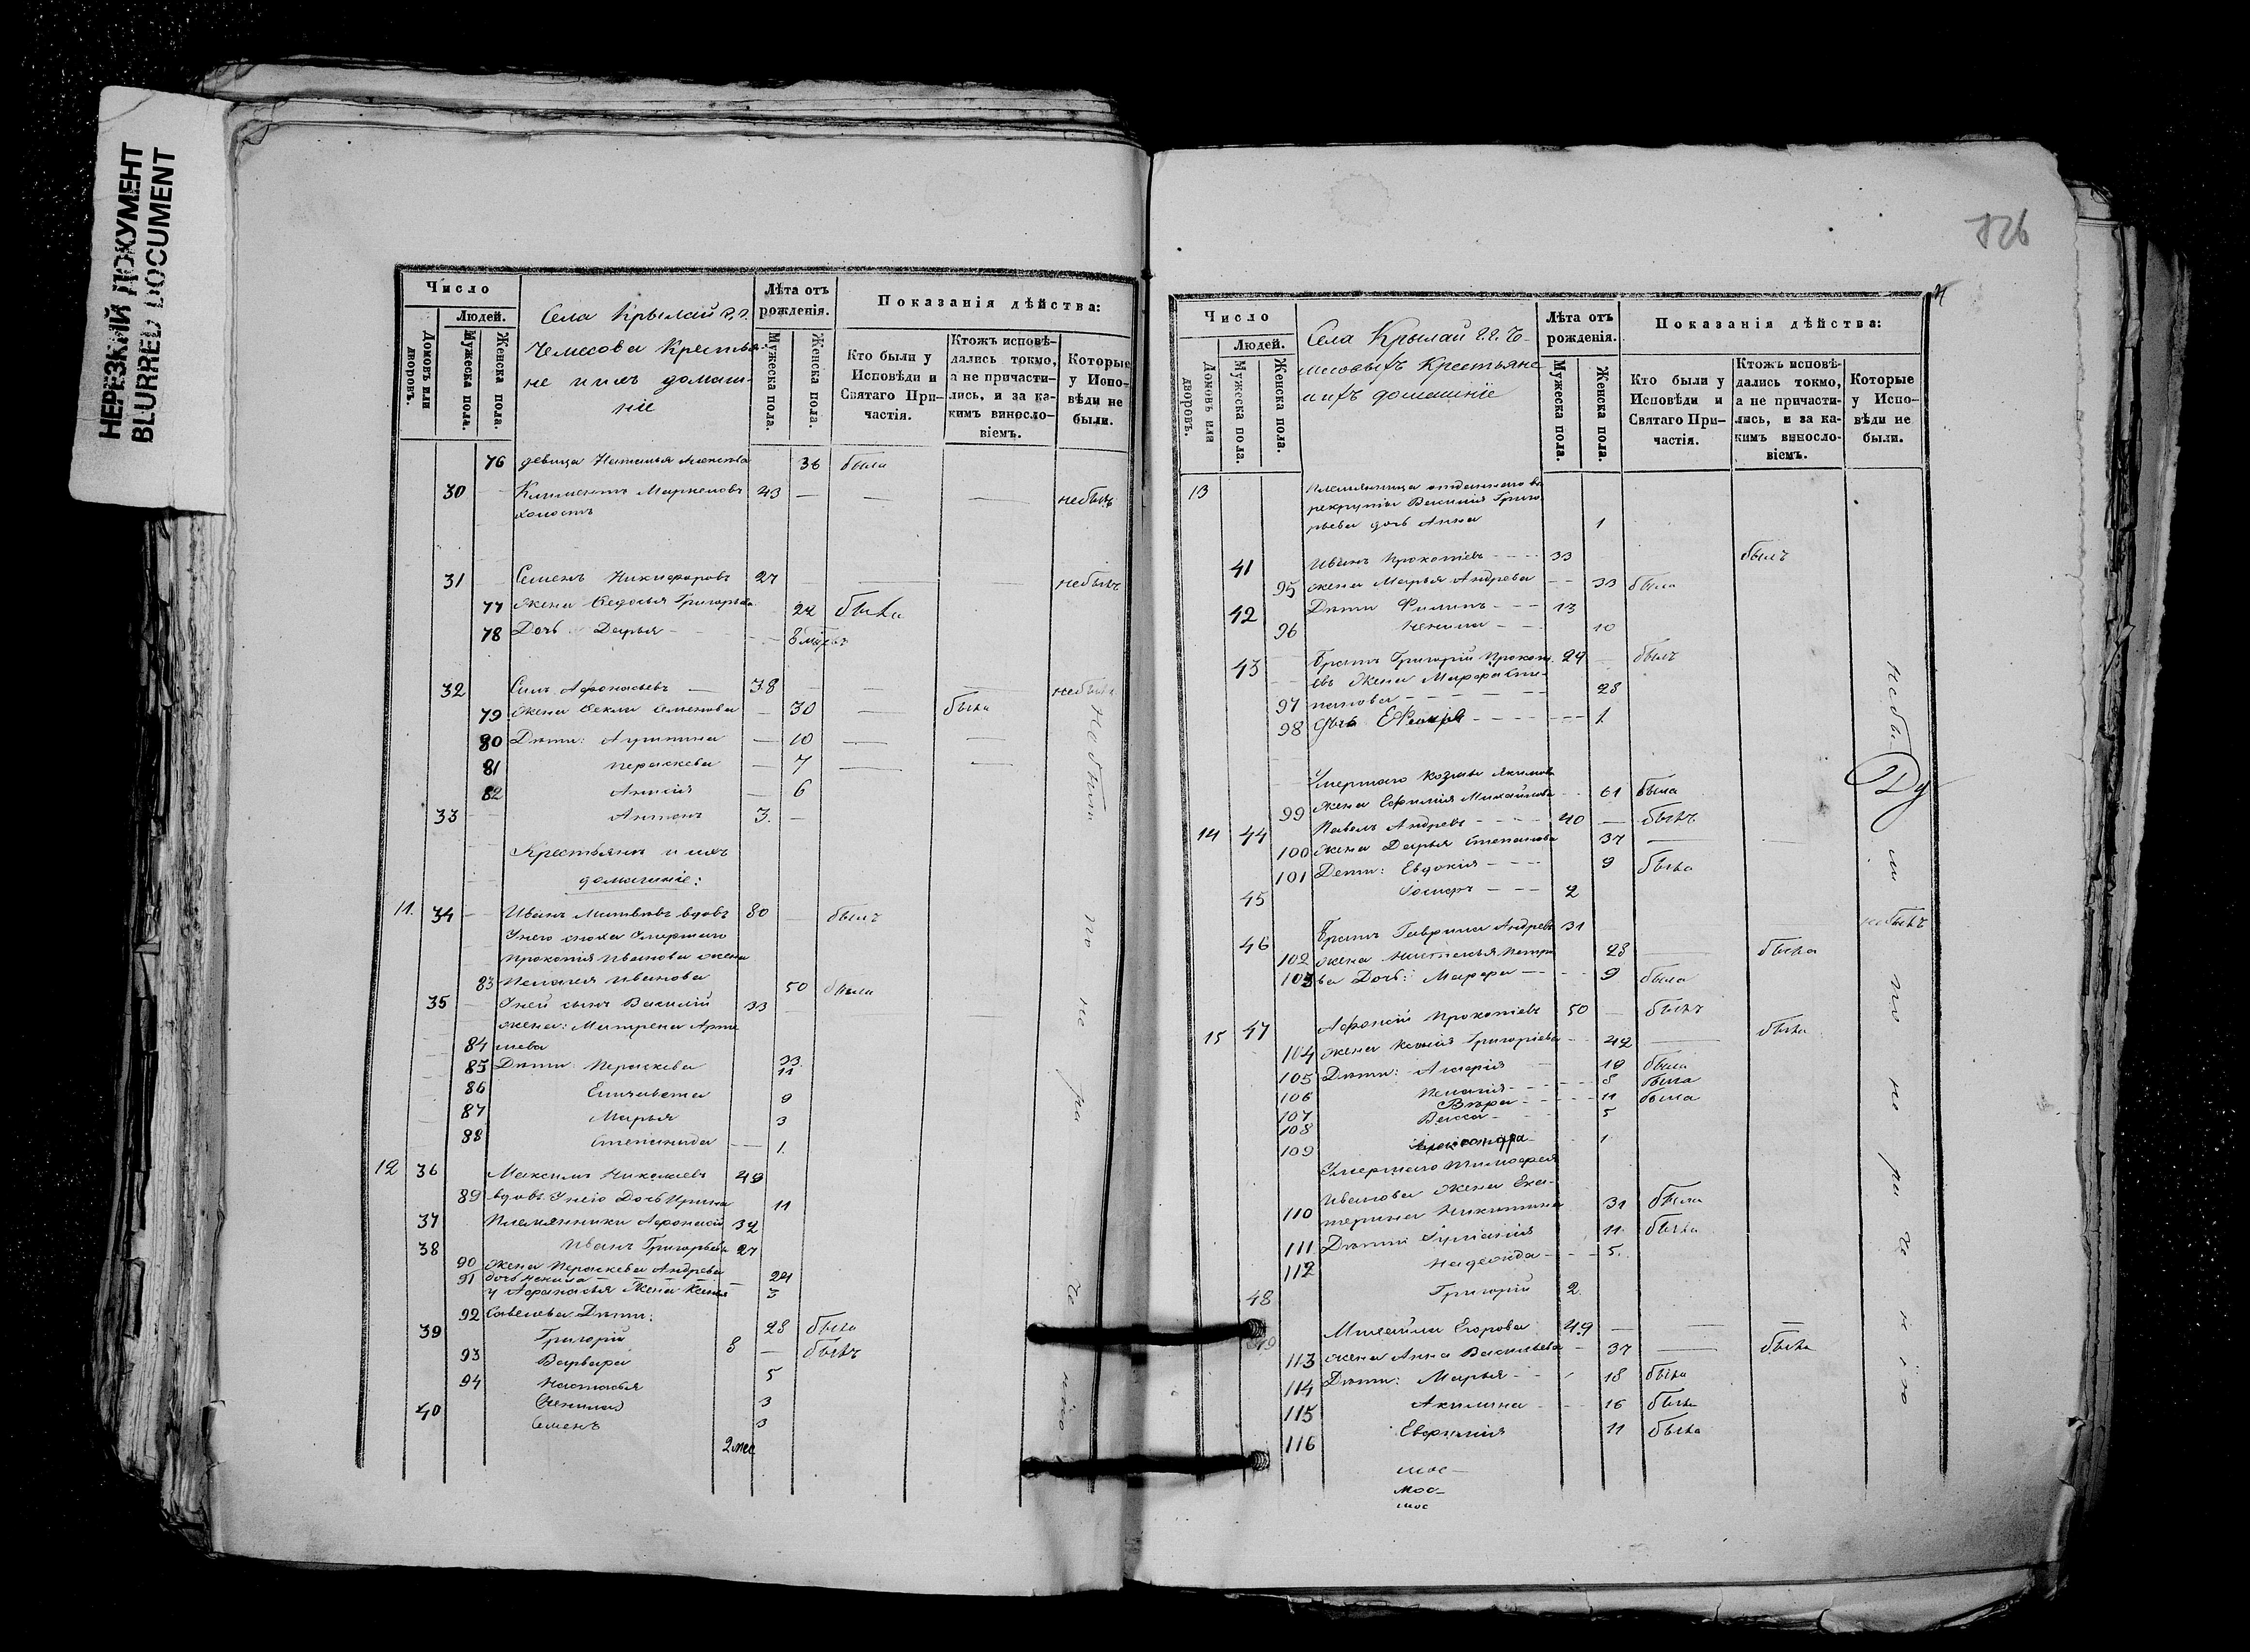 НЕРЕЗКИЙ ДОКУМЕНТ
BLURRED DOCUMENT
Число
Людей.
Домовъ или дворовъ.
Мужеска пола.
Женска пола.
Села Крылай г.г.
Чемесова Крестья-
не и ихъ домаш-
ніе
Лѣта отъ рожденія.
Мужеска пола.
Женска пола.
Показанія дѣйства:
Кто были у Исповѣди и Святаго При-частія.
Ктожъ исповѣ-дались токмо, а не причасти-лись, и за ка-кимъ виносло-віемъ.
Которые у Испо-вѣди не были.
76 девица Наталья 36 была
30 Климентъ Маркеловъ 43 небылъ
холостъ
31 Семенъ Никифоровъ 27 небылъ
77 жена Федосья Григорьева 22 была
78 Дочь Дарья 8 мѣ
32 Сила Афонасьевъ 38 небылъ
79 жена Фекла Семенова 30 была
80 Дѣти: Агрипина 10
81 Параскева 7
82 Анисія 6
33 Антонъ 3.
Крестьяне и ихъ
домашніе:
11. 34 Иванъ вдовъ 80 былъ
Унего сноха Умершаго
Прокопія Иванова жена
83 Пелагея Иванова 50 была
35 Уней сынъ Василій 33
жена: Матрена Арте
84 мева 33
85 Дѣти: Параскева 11
86 Елизавета 9
87 Марья 3
88 Степанида 1.
12 36 Максимъ Николаевъ 49
89 вдовъ Унего Дочь Ирина 11
37 Племянники Афонасій 32
38 Иванъ Григорьевъ 27
90 жена Параскева Андреева 24
91 дочь 3
у Афанасья Жена Ксенія
92 Савельева Дѣти: 28 была
39 Григорій 8 былъ
93 Варвара 5
94 Настасья 3
3
40 Семенъ 2 мес
Небыли по не ра че нію
126
Число
Людей.
Домовъ или дворовъ.
Мужеска пола.
Женска пола.
Села Крылай г.г. Че-
месовыхъ Крестьяне
и ихъ домашніе
Лѣта отъ рожденія.
Мужеска пола.
Женска пола.
Показанія дѣйства:
Кто были у Исповѣди и Святаго При-частія.
Ктожъ исповѣ-дались токмо, а не причасти-лись, и за ка-кимъ виносло-віемъ.
Которые у Испо-вѣди не были.
13 Племянница отданнаго въ
рекруты Василія Григо
рьева дочь Анна 1
41 Иванъ Прокопіевъ 33 былъ
95 жена Марья Андреева 33 была
42 Дѣти Филипъ 13
96 10
43 Братъ Григорій Прокопі 29 былъ
евъ Жена Марфа Сте-
97 панова 28
98 дочь 1
Умершаго Козмы Якимова
99 жена Ефимія Михайлова 61 была
14 44 Павелъ Андреевъ 40 былъ
100 жена Дарья Степанова 37
101 Дети: Евдокія 9 была
45 Іосифъ 2
46 Братъ Гаврила Андреевъ 31 небылъ
102 жена Наталья Петро 28 была
103 ва Дочь: Марфа 9 была
15 47 Афонасій Прокопіевъ 50 былъ
104 жена Ксенія Григоріева 42 была
105 Дѣти: 19 была
106 Пелагія 8 была
107 Вѣра 11 была
108 Васса 5
109 Александра 1
Умершаго Тимофея
Иванова Жена Ека-
110 терина Никитина 31 была
111 Дѣти: 11 была
112 Надежда 5.
48 Григорій 2.
49 Михайла Егорова 49
113 жена Анна Васильева 37 была
114 Дѣти: Марья 18 была
115 Акилина 16 была
116 Евфимія 11 была
небы ли по не ра че нію